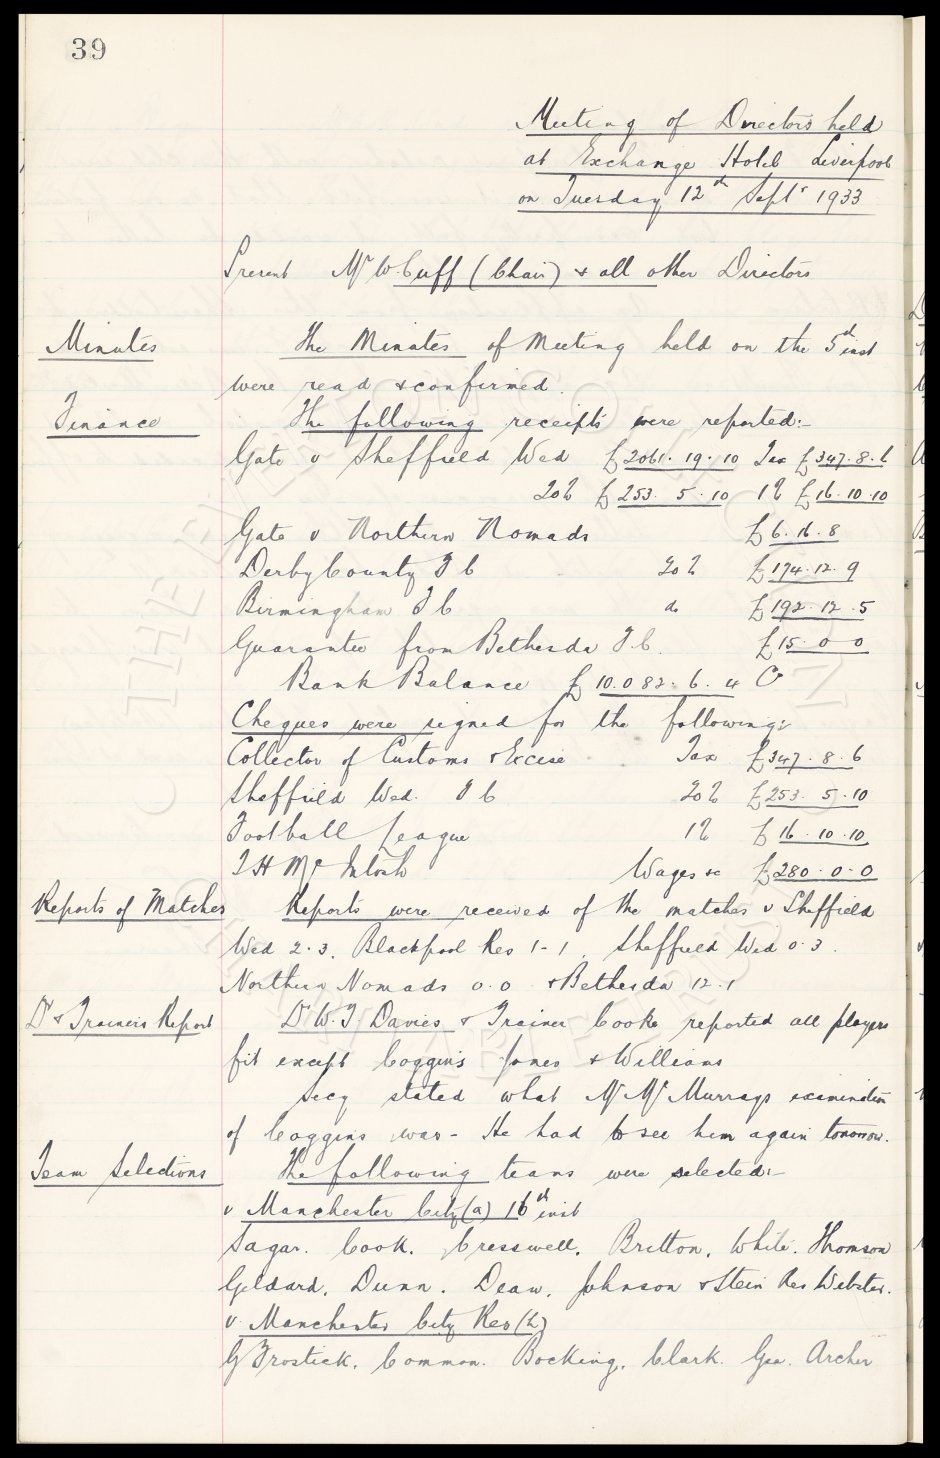 39
Meeting of Directors held
at Exchange Hotel Liverpool
on Tuesday 12th Septr 1933
Present Mr W. Cuff (Chair) & all other Directors
Minutes The Minutes of Meeting held on the 5th inst
were read & confirmed.
Finance The following receipts were reported:-
Gate v Sheffield Wed £2061.19.10 Tax £347.8.6
20% £253.5.10 1% £16.10.10
Gate v Northern Nomads £6.16.8
Derby County F C 20% £174.12.9
Birmingham F C do £192.12.5
Guarantee from Bethesda F.C. £15.0.0
Bank Balance £10.082.6.4 Cr
Cheques were signed for the following:
Collector of Customs & Excise Tax £347.8.6
Sheffield Wed. F C 20% £253.5.10
Football League 1% £16.10.10
T H McIntosh Wages &c £280.0.0
Reports of Matches Reports were received of the matches v Sheffield
Wed 2.3. Blackpool Res 1-1. Sheffield Wed 0.3.
Northern Nomads 0.0 & Bethesda 12.1
Dr & Trainers Report Dr W.T Davies & Trainer Cooke reported all players
fit except Coggins Jones & Williams
Secy stated what Mr McMurrays examination
of Coggins was - He had to see him again tomorrow.
Team Selections The following teams were selected:-
v Manchester City (a) 16th inst
Sagar. Cook. Cresswell. Britton. White. Thomson
Geldard. Dunn. Dean. Johnson & Stein Res Webster.
v. Manchester City Res (h)
G Frostick. Common. Bocking. Clark. Gee. Archer
THE EVERTON COLLECTION
CHARITABLE TRUST